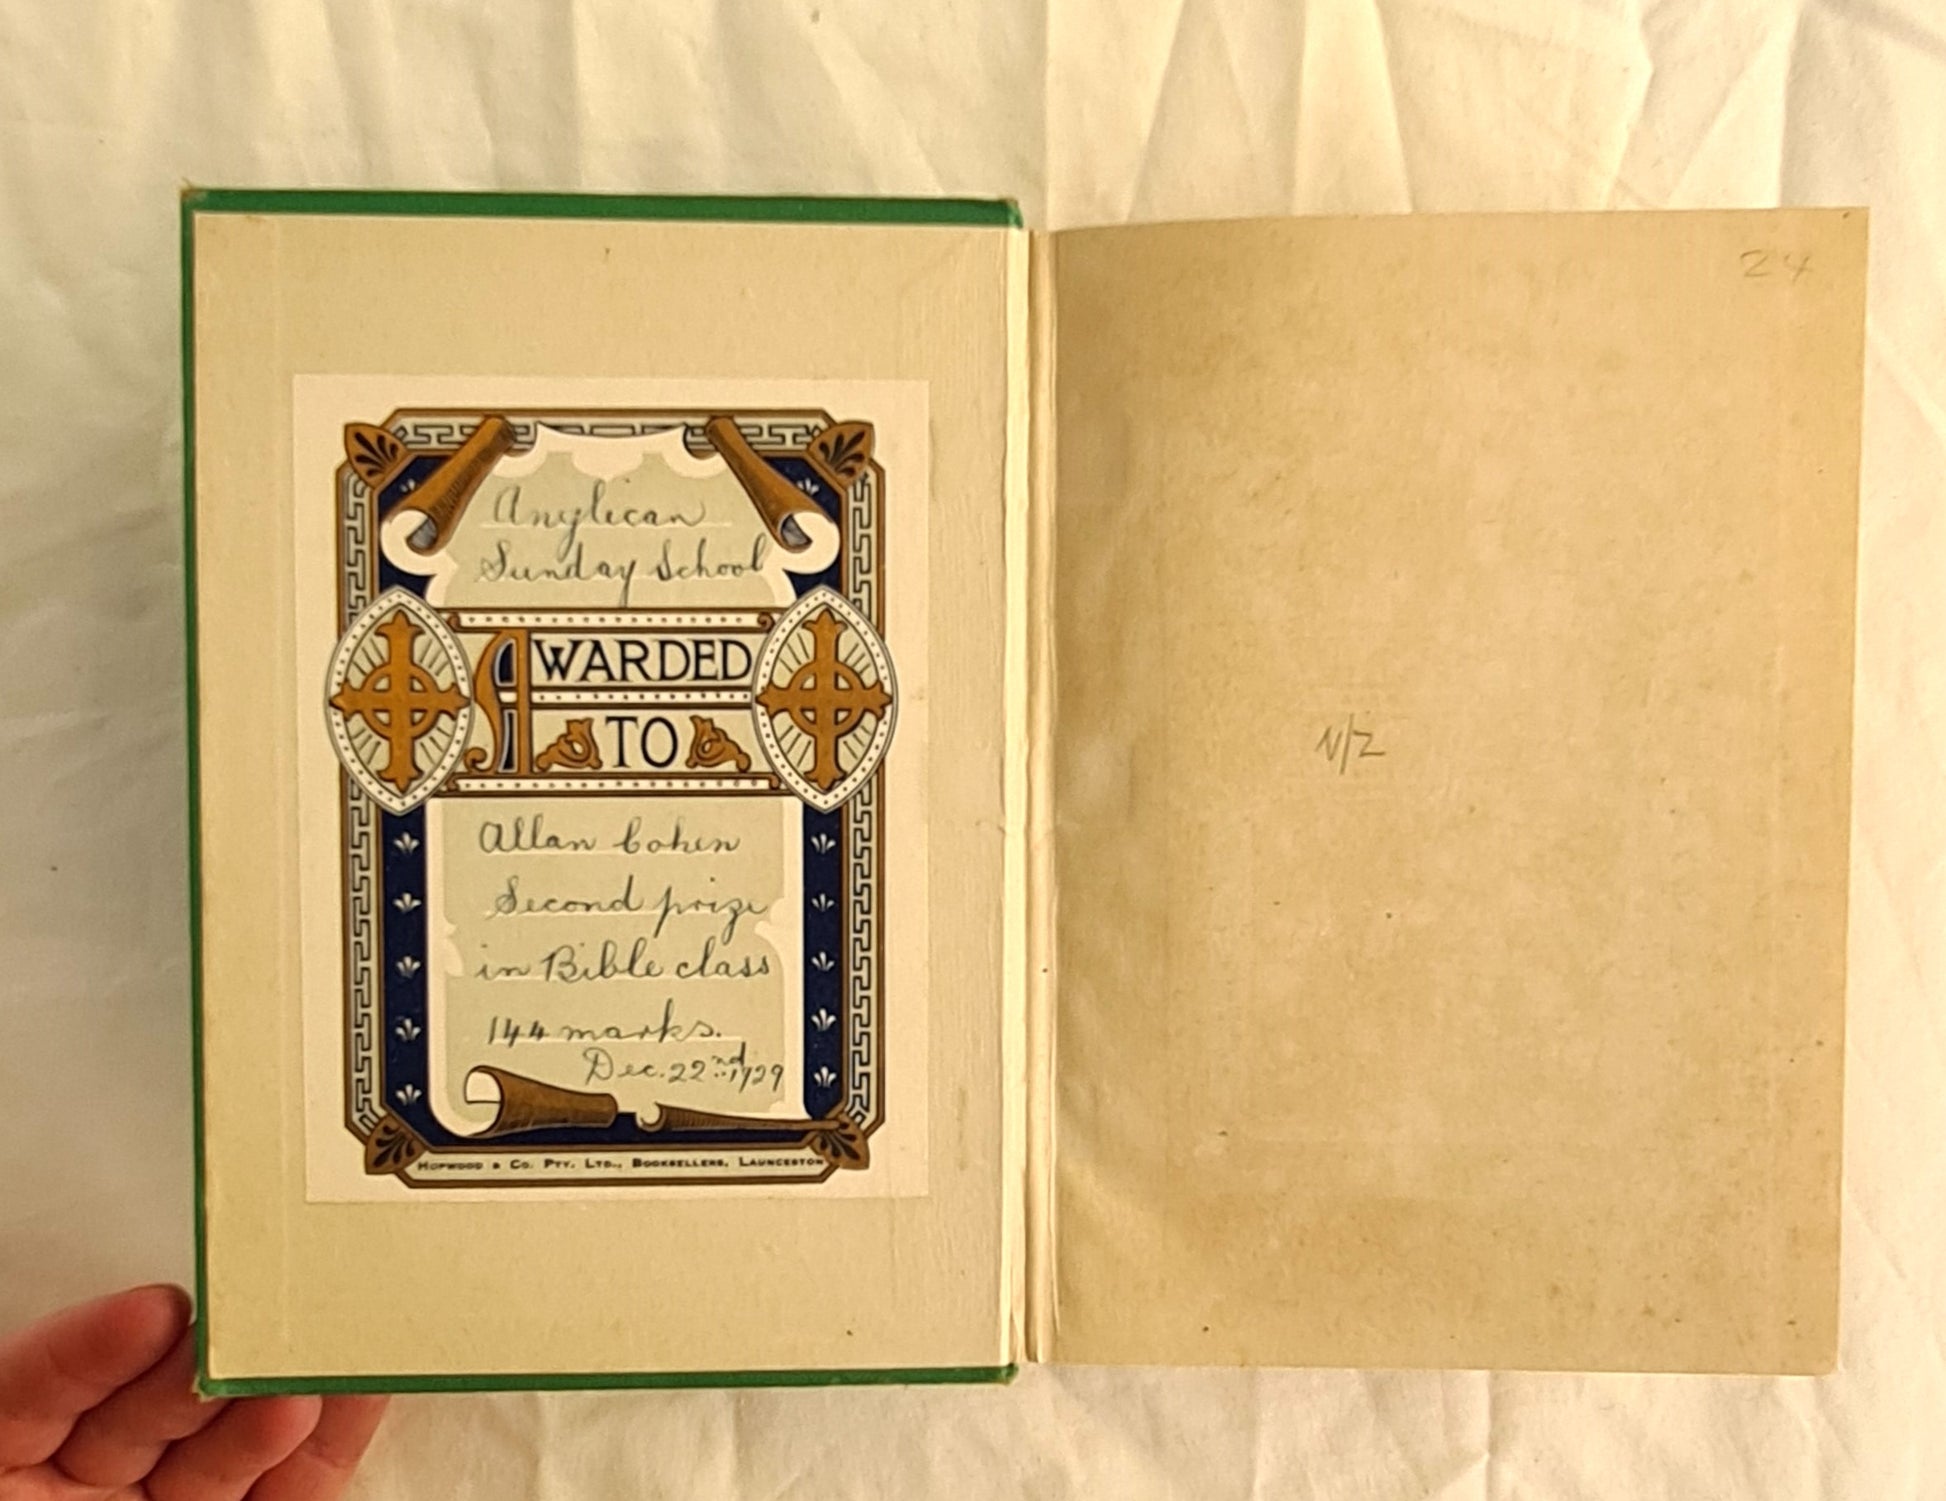 Anglican
Sunday School
AWARDED
TO
Allan Cohen
Second prize
in Bible class
144 marks.
Dec. 22nd 1929
HOPWOOD & CO. PTY. LTD., BOOKSELLERS, LAUNCESTON
24
N/Z